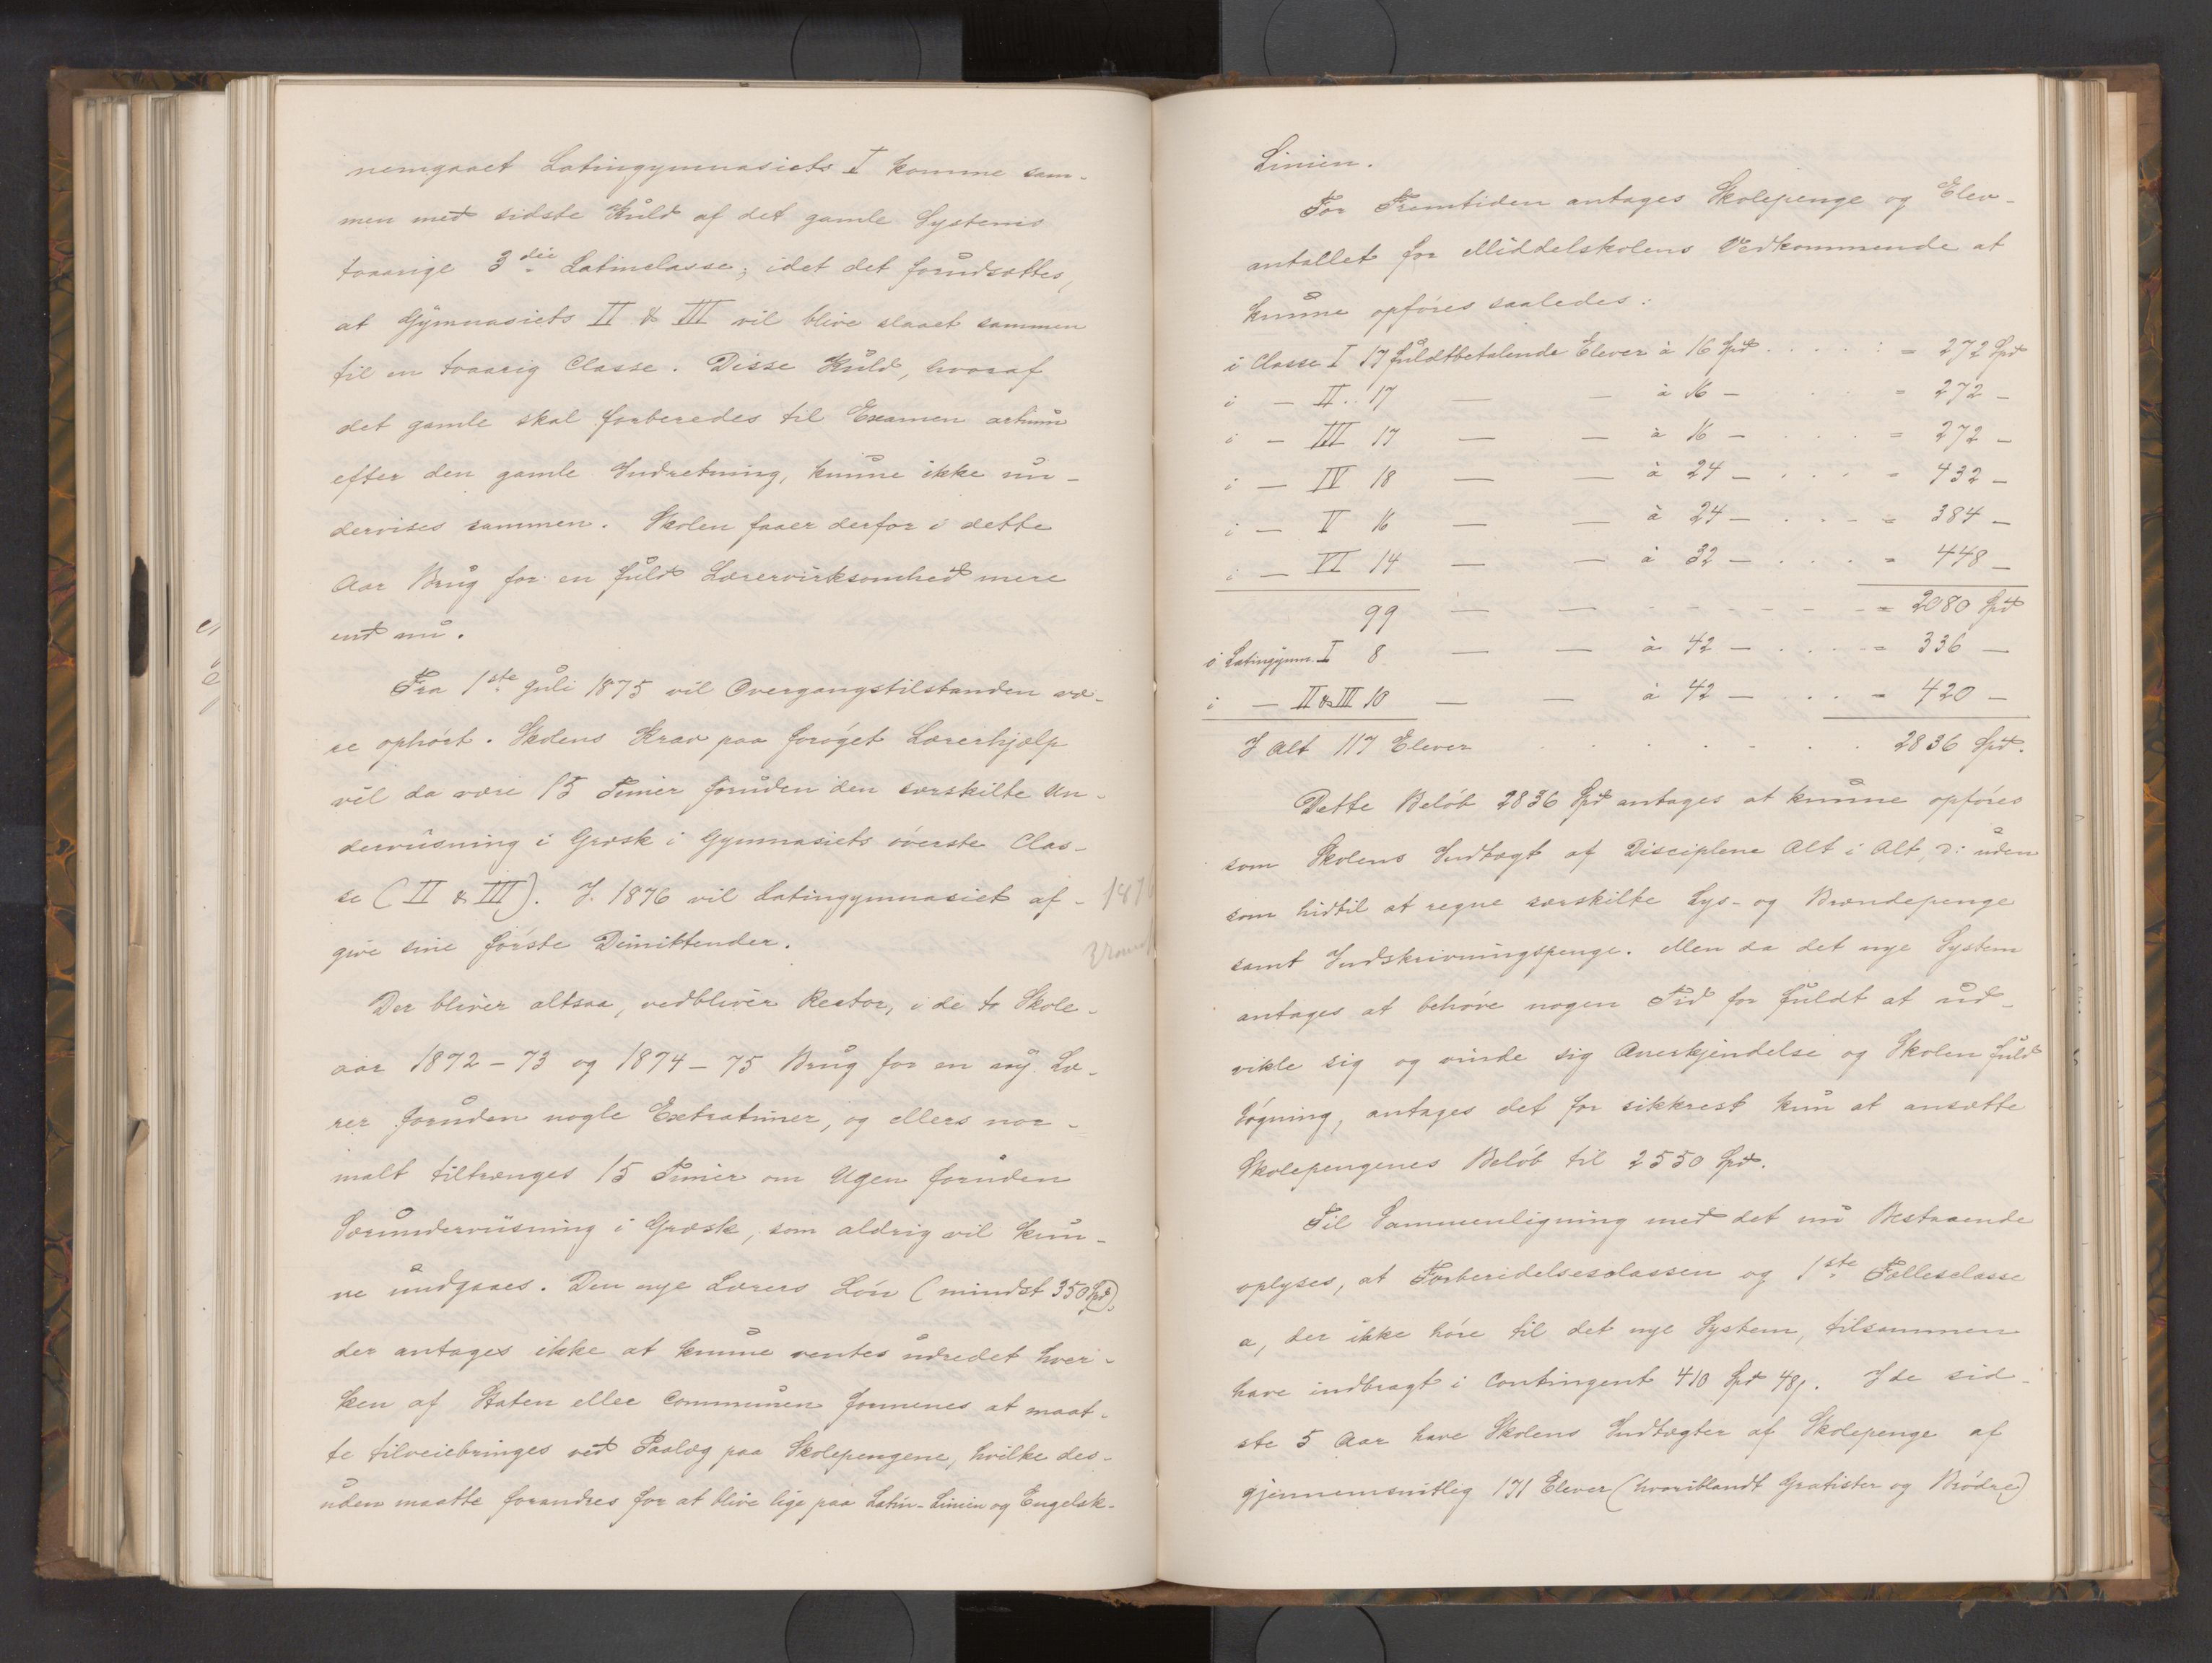 nemgaaet Latingymnasiets I komme sam-
men med sidste Kuld af det gamle Systems
toaarige 3die Latinclasse; idet det forudsættes,
at Gymnasiets II & III vil blive slaaet sammen
til en toaarig Classe. Disse Kuld, hvoraf
det gamle skal forberedes til Examen artium
efter den gamle Indretning, kunne ikke un-
dervises sammen. Skolen faaer derfor i dette
Aar Brug for en fuld Lærervirksomhed mere
end nu.
Fra 1ste Juli 1875 vil Overgangstilstanden væ-
re ophørt. Skolens Krav paa forøget Lærerhjælp
vil da være 15 Timer foruden den særskilte Un-
derviisning i Græsk i Gymnasiets øverste Clas-
se (II & III). I 1876 vil Latingymnasiet af-
give sine første Dimittender.
1876
Der bliver altsaa, vedbliver Rector, i de to Skole-
aar 1872-73 og 1874-75 Brug for en ny Læ-
rer foruden nogle Extratimer, og ellers nor-
malt tiltrænges 15 Timer om Ugen foruden
Særunderviisning i Græsk, som aldrig vil kun-
ne undgaaes. Den nye Lærers Løn (mindst 350 Spd),
der antages ikke at kunne ventes udredet hver-
ken af Staten eller Communen formenes at maat-
te tilveiebringes ved Paalæg paa Skolepengene, hvilke des-
uden maatte forandres for at blive lige paa Latin-Linien og Engelsk-
Linien.
For Fremtiden antages Skolepenge og Elev-
antallet for Middelskolens Vedkommende at
kunne opføres saaledes:
i Classe I 17 fuldtbetalende Elever à 16 Spd . . . . : = 272 Spd
i — II . . 17 — — à 16 — . . . = 272 —
i — III 17 — — à 16 — . . . . = 272 —
i — IV 18 — — à 24 — . . . . = 432 —
i — V 16 — — à 24 — . . . = 384 —
i — VI 14 — — à 32 — . . . . = 448 —
99 — — - - - - - = 2080 Spd
i Latingymn. I 8 — — à 42 — . . . . = 336 —
i — II & III 10 — — à 42 — . . . = 420 —
I Alt 117 Elever . . . . . . . 2836 Spd.
Dette Beløb 2836 Spd antages at kunne opføres
som Skolens Indtægt af Disciplene Alt i Alt, ɔ: uden
som hidtil at regne særskilte Lys- og Brændepenge
samt Indskrivningspenge. Men da det nye System
antages at behøve nogen Tid for fuldt at ud-
vikle sig og vinde sig Anerkjendelse og Skolen fuld
Søgning, antages det for sikkrest kun at ansætte
Skolepengenes Beløb til 2550 Spd.
Til Sammenligning med det nu Bestaaende
oplyses, at Forberedelsesclassen og 1ste Fællesclasse
a, der ikke høre til det nye System, tilsammen
have indbragt i Contingent 410 Spd 48 β. I de sid-
ste 5 Aar have Skolens Indtægter af Skolepenge af
gjennemsnitlig 171 Elever (hvoriblandt Gratister og Brødre)